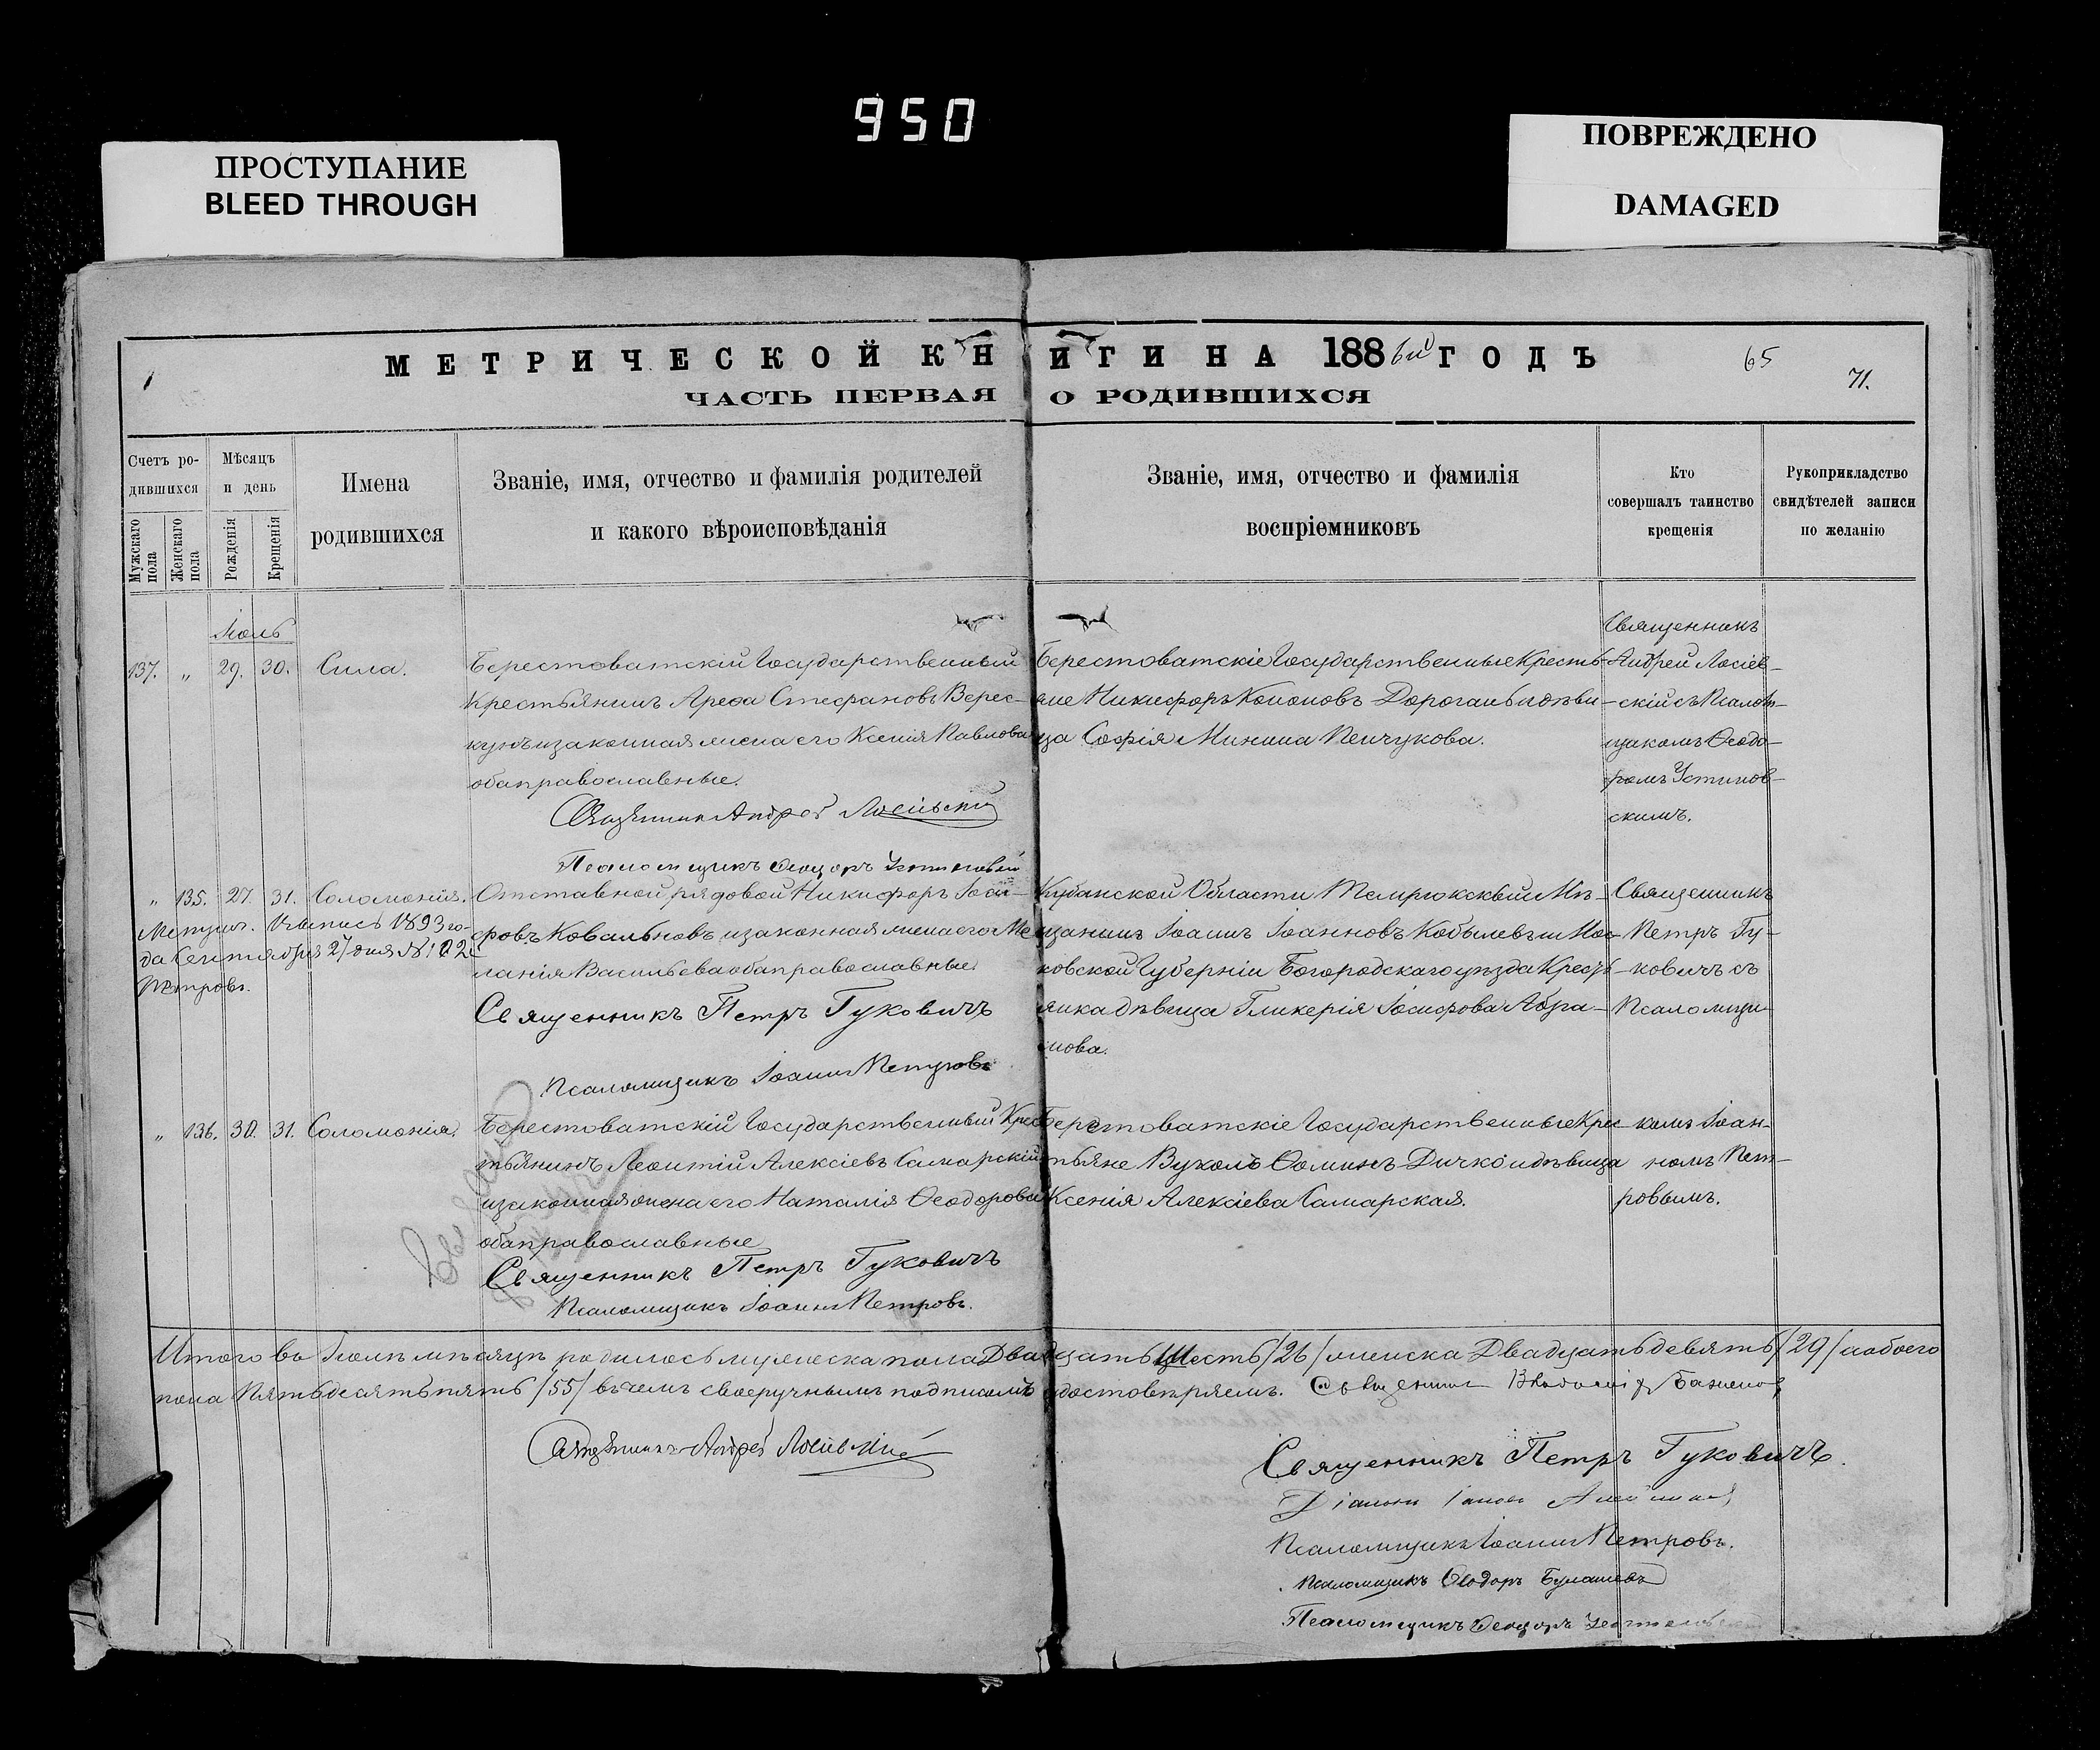 950
ПРОСТУПАНИЕ
BLEED THROUGH
ПОВРЕЖДЕНО
DAMAGED
МЕТРИЧЕСКОЙ КНИГИ НА 1886й ГОДЪ
65
71.
ЧАСТЬ ПЕРВАЯ О РОДИВШИХСЯ
Счетъ родившихся
Мужскаго пола
Женскаго пола
Мѣсяцъ и день
Рожденія
Крещенія
Имена родившихся
Званіе, имя, отчество и фамилія родителей
и какого вѣроисповѣданія
Званіе, имя, отчество и фамилія
воспріемниковъ
Кто
совершалъ таинство
крещенія
Рукоприкладство
свидѣтелей записи
по желанію
Іюль
137. „ 29. 30. Сила.
Берестоватскій Государственный
Крестьянинъ Арефа Стефановъ Верес-
кунъ и законная жена его Ксенія Павлова
оба православные.
Священникъ Андрей
Псаломщикъ Ѳеодоръ
Берестоватскіе Государственные Кресть-
яне Никифоръ Кононовъ Дорогань и дѣви-
ца Софія Минина Пенчукова.
Священникъ
Андрей Лосіев-
скій съ Псалом-
щикомъ Ѳеодо-
ромъ Устинов-
скимъ.
„ 135. 27. 31. Соломонія.
Метрич. Выпись 1893 го-
да Сентября 27 дня № 102
Петровъ.
Отставной рядовой Никифоръ
Ковальновъ и законная жена его Ме-
ланія Васильева оба православные.
Священникъ Петръ Гуковичъ
Псаломщикъ Іоаннъ Петровъ
Кубанской Области Темрюкскій Мѣ-
щанинъ Іоаннъ Іоанновъ Кобылевъ и Мос-
ковской Губерніи Богородскаго уѣзда Кресть-
янка дѣвица Гликерія Іосифова Абра-
мова.
Священникъ
Петръ Гу-
ковичъ съ
Псаломщи-
„ 136. 30. 31. Соломонія.
Берестоватскій Государственный Крес-
тьянинъ Леонтій Алексіевъ Самарскій
и законная жена его Наталія Ѳеодорова
оба православные
Священникъ Петръ Гуковичъ
Псаломщикъ Іоаннъ Петровъ.
Берестоватскіе Государственные Крес-
тьяне Вуколъ Ѳоминъ Дичко и дѣвица
Ксенія Алексіева Самарская.
комъ Іоан-
номъ Пет-
ровымъ.
Итого въ Іюлѣ мѣсяцѣ родилось мужеска пола Двадцать Шесть /26/ женска Двадцать девять /29/ и обоего
пола Пятьдесятъ пять /55/ въ чемъ своеручнымъ подписомъ удостовѣряемъ. Священникъ
Священникъ Андрей
Священникъ Петръ Гуковичъ.
Діаконъ
Псаломщикъ Іоаннъ Петровъ.
Псаломщикъ Ѳеодоръ
Псаломщикъ Ѳеодоръ